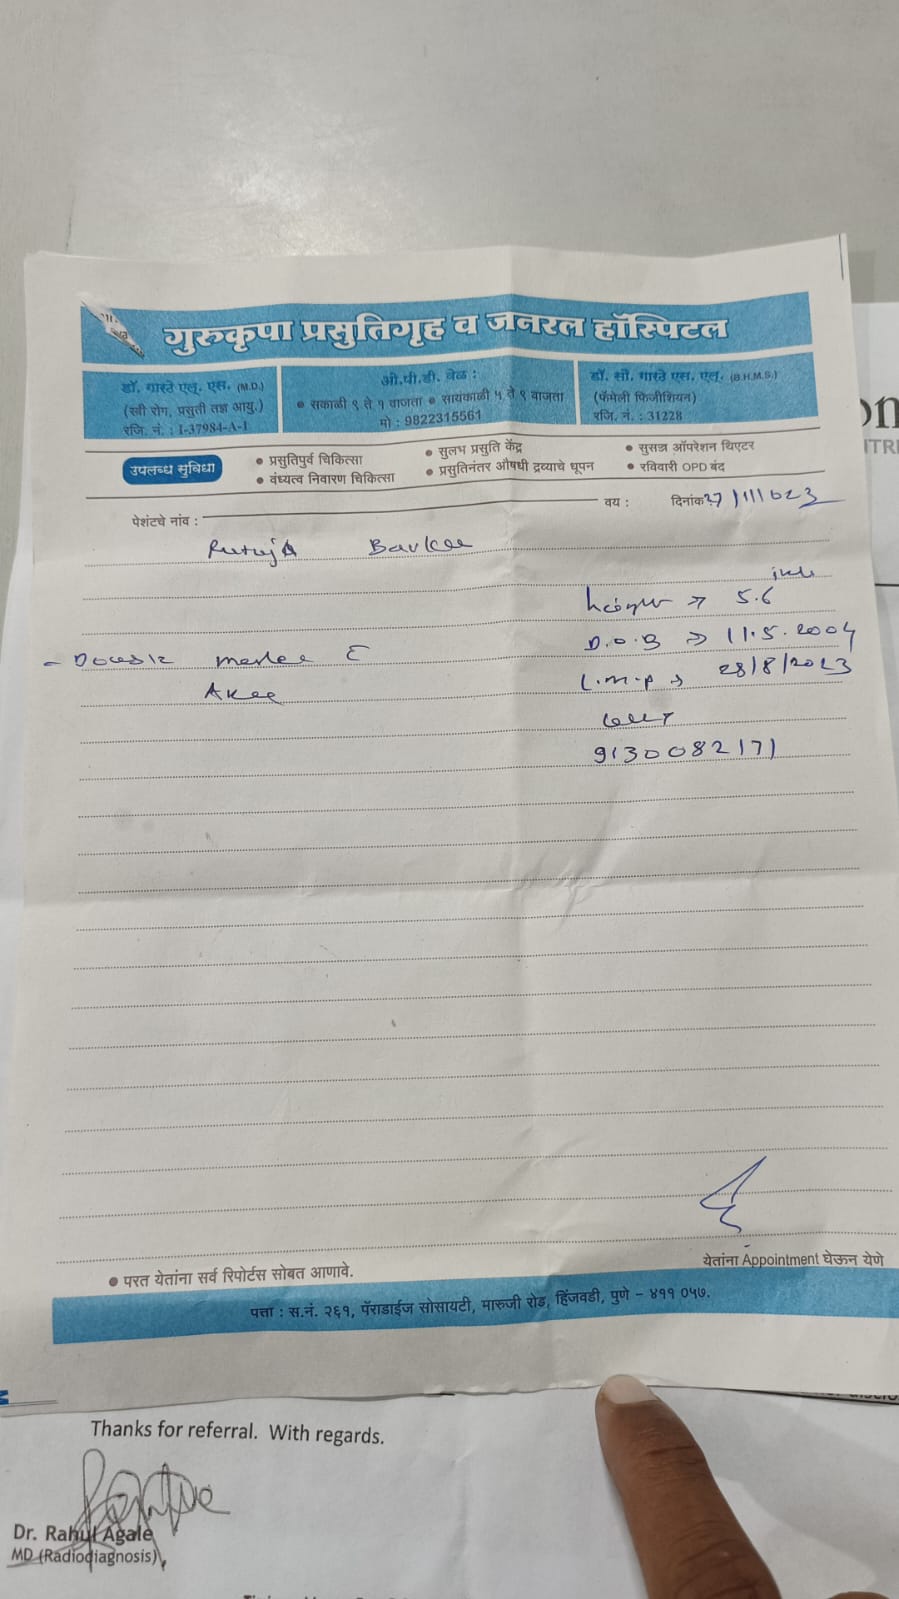 गुरुकृपा प्रसुतिगृह व जनरल हॉस्पिटल
डॉ. गारते एल. एस. (M.D.)
(स्त्री रोग, प्रसुती तज्ञ आयु.)
रजि. नं. : I-37984-A-1
ओ.पी.डी. वेळ :
● सकाळी ९ ते १ वाजता ● सायंकाळी ५ ते ९ वाजता
मो : 9822315561
डॉ. सौ. गारते एस. एल. (B.H.M.S.)
(फॅमेली फिजीशियन)
रजि. नं. : 31228
उपलब्ध सुविधा
● प्रसुतिपुर्व चिकित्सा
● वंध्यत्व निवारण चिकित्सा
● सुलभ प्रसुति केंद्र
● प्रसुतिनंतर औषधी द्रव्याचे धूपन
● सुसज्ज ऑपरेशन थिएटर
● रविवारी OPD बंद
पेशंटचे नांव :
वय :
दिनांक
5.6
D.O.B → 11.5.2004
L.M.P → 28/8/2023
9130082171
येतांना Appointment घेऊन येणे
● परत येतांना सर्व रिपोर्टस सोबत आणावे.
पत्ता : स.नं. २६१, पॅराडाईज सोसायटी, मारुजी रोड, हिंजवडी, पुणे - ४११ ०५७.
Thanks for referral. With regards.
Dr. Rahul Agale
MD (Radiodiagnosis)